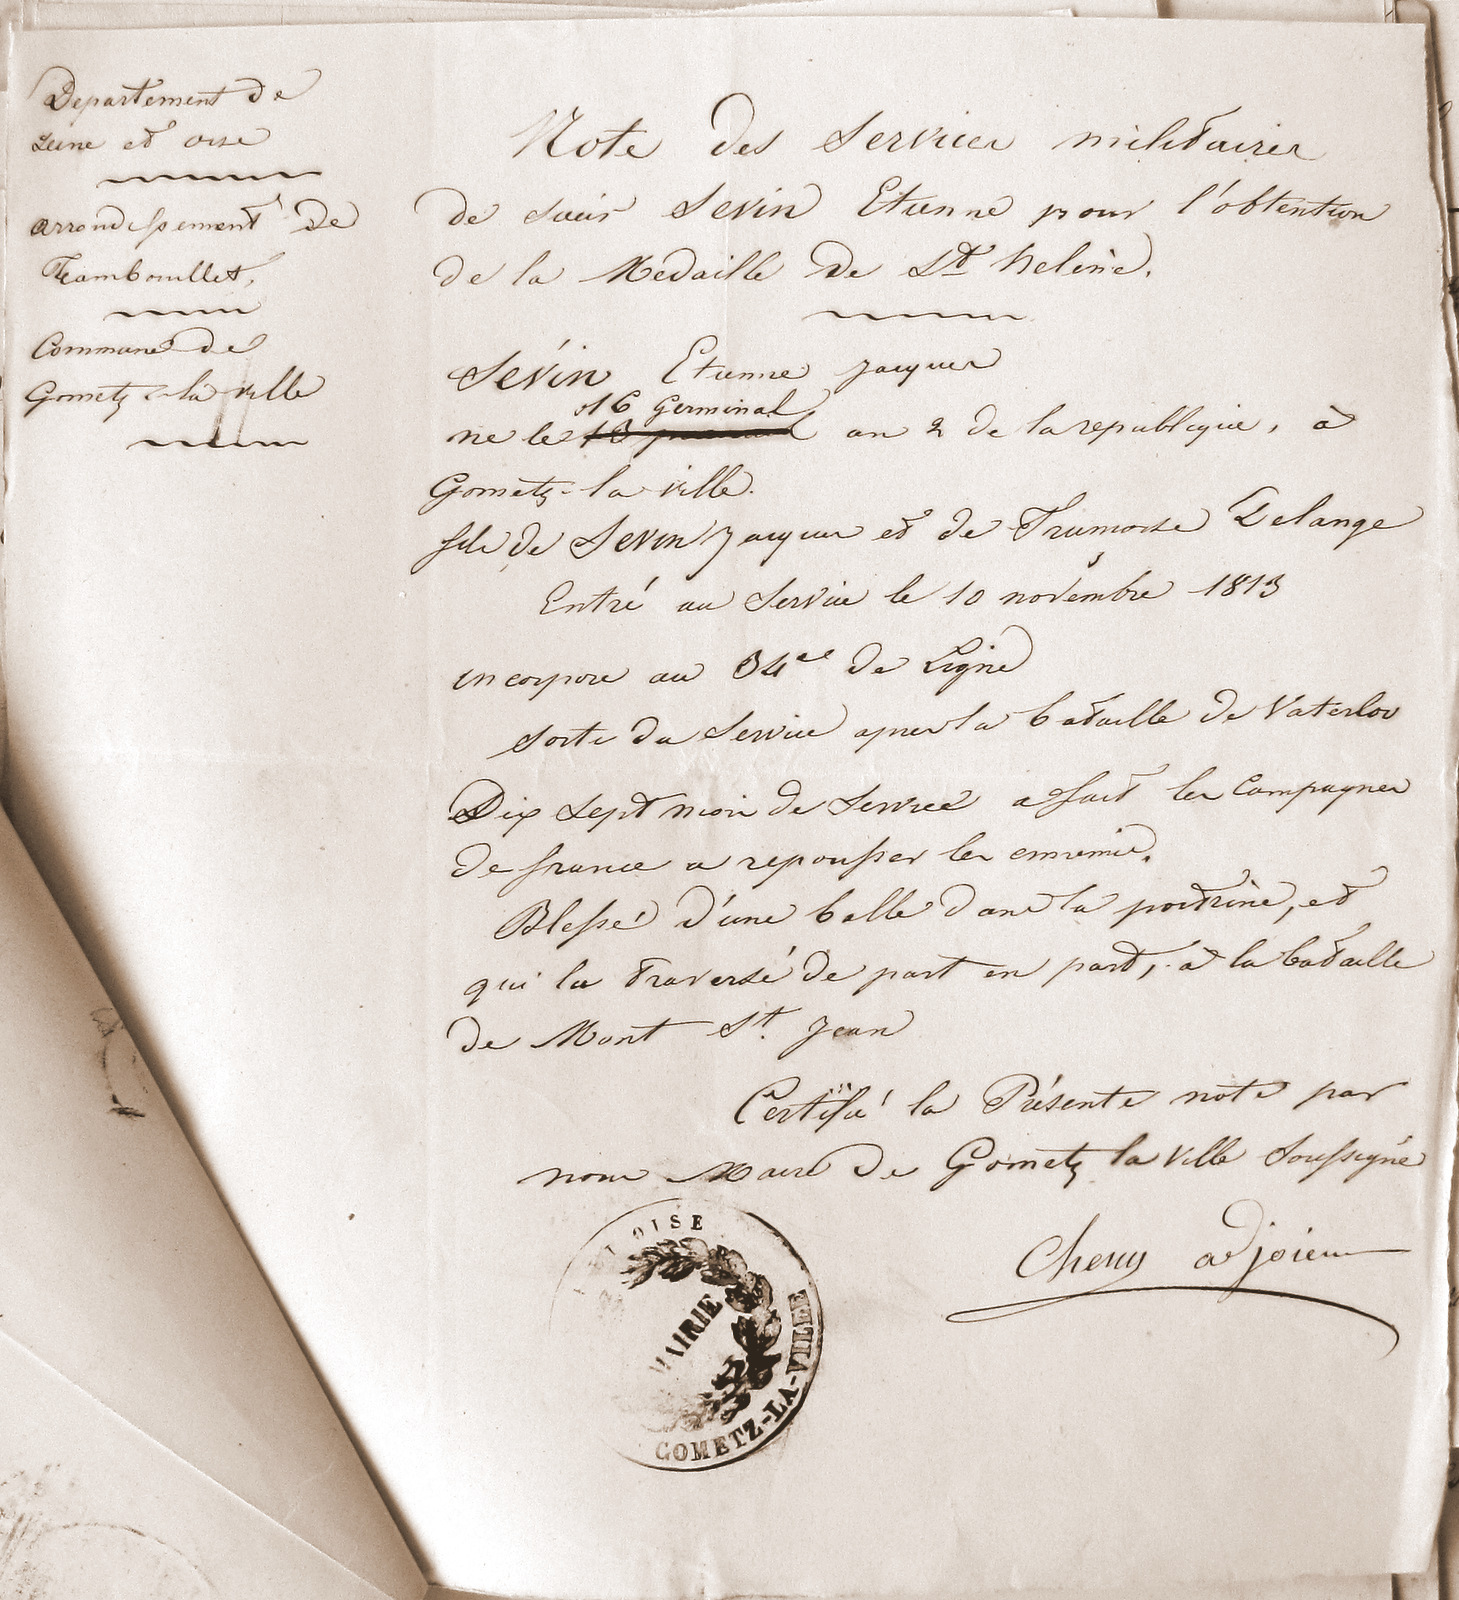 Departement de
Seine et oise
arrondissement de
Rambouillet,
Commune de
Gometz-la ville
Note des services militaires
de sieur Sevin Etienne pour l'obtention
de la Medaille de St helène.
Sévin Etienne jacques
16 Germinal
ne le 13 an 2 de la republique, à
Gometz-la ville.
fils de Sevin jacques et de Delange
Entré au Service le 10 novembre 1813
incorpore au 34ee de Ligne
sorti du Service apres la bataille de Vaterloo
Dix sept mois de Service a fait les Campagnes
de france a repousser les ennemis.
Blessé d'une balle dans la poitrine, et
qui la traversé de part en part, à la bataille
de Mont St. Jean
Certifié la Présente note par
nous Maire de Gometz la ville Soussigné
adjoint
OISE
MAIRIE
GOMETZ-LA-VILLE